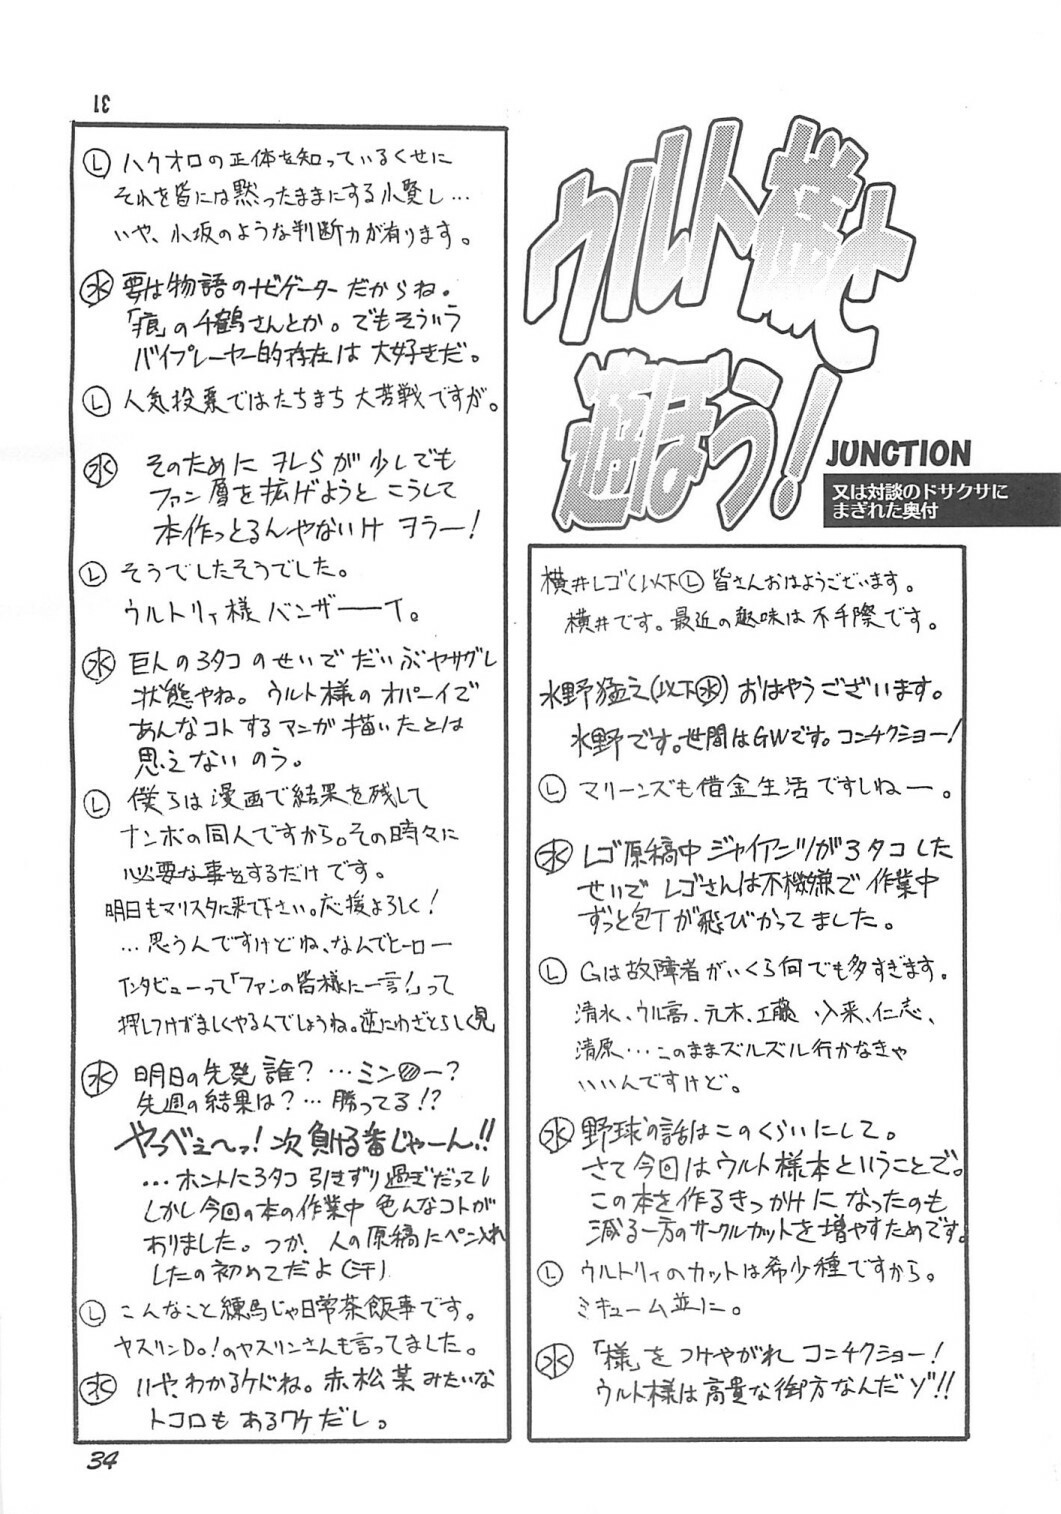 31
ウルト様と
遊ぼう!
JUNCTION
又は対談のドサクサに
まぎれた奥付
横井レゴ(以下Ⓛ) 皆さんおはようございます。
横井です。最近の趣味は不手際です。
水野猛之(以下㊌) おはようございます。
水野です。世間はGWです。コンチクショー!
Ⓛ マリーンズも借金生活ですしねー。
㊌ レゴ原稿中ジャイアンツが3タコした
せいでレゴさんは不機嫌で作業中
ずっと包丁が飛びかってました。
Ⓛ Gは故障者がいくら何でも多すぎます。
清水、ウル高、元木、工藤、入来、仁志、
清原…このままズルズル行かなきゃ
いいんですけど。
㊌ 野球の話はこのくらいにして。
さて今回はウルト様本ということで。
この本を作るきっかけになったのも
減る一方のサークルカットを増やすためです。
Ⓛ ウルトリィのカットは希少種ですから。
ミキューム並に。
㊌ 「様」をつけやがれコンチクショー!
ウルト様は高貴な御方なんだゾ!!
Ⓛ ハクオロの正体を知っているくせに
それを皆には黙ったままにする小賢し…
いや、小坂のような判断力が有ります。
㊌ 要は物語のナビゲーターだからね。
「痕」の千鶴さんとか。でもそういう
バイプレーヤー的存在は大好きだ。
Ⓛ 人気投票ではたちまち大苦戦ですが。
㊌ そのためにヲレらが少しでも
ファン層を拡げようとこうして
本作っとるんやないけヲラー!
Ⓛ そうでしたそうでした。
ウルトリィ様バンザーーイ。
㊌ 巨人の3タコのせいでだいぶヤサグレ
状態やね。ウルト様のオパーイで
あんなコトするマンガ描いたとは
思えないのう。
Ⓛ 僕らは漫画で結果を残して
ナンボの同人ですから。その時々に
必要な事をするだけです。
明日もマリスタに来て下さい。応援よろしく!
…思うんですけどね、なんでヒーロー
インタビューって「ファンの皆様に一言!」って
押しつけがましくやるんでしょうね。逆にわざとらしく見
㊌ 明日の先発誰?…ミン〇ー?
先週の結果は?…勝ってる!?
やっべぇ〜っ!次負ける番じゃーん!!
…ホントに3タコ引きずり過ぎだってし
しかし今回の本の作業中色んなコトが
ありました。つか、人の原稿にペン入れ
したの初めてだよ(汗)
Ⓛ こんなこと練馬じゃ日常茶飯事です。
ヤスリンDo!のヤスリンさんも言ってました。
㊌ いや、わかるケドね。赤松葉みたいな
トコロもあるワケだし。
34